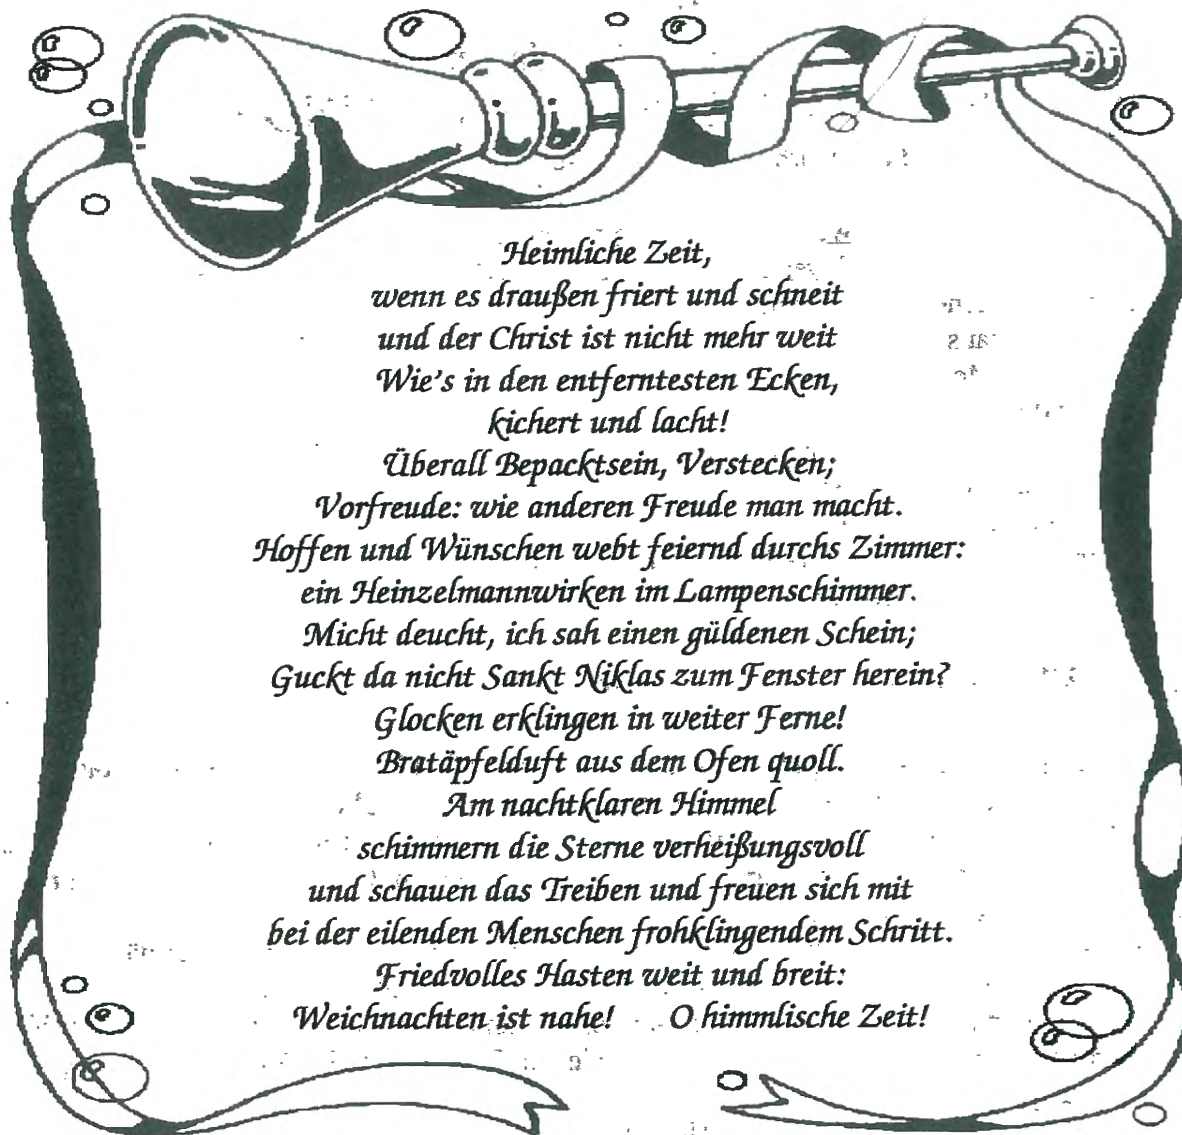 Heimliche Zeit,
wenn es draußen friert und schneit
und der Christ ist nicht mehr weit
Wie's in den entferntesten Ecken,
kichert und lacht!
Überall Bepacktsein, Verstecken;
Vorfreude: wie anderen Freude man macht.
Hoffen und Wünschen webt feiernd durchs Zimmer:
ein Heinzelmannwirken im Lampenschimmer.
Micht deucht, ich sah einen güldenen Schein;
Guckt da nicht Sankt Niklas zum Fenster herein?
Glocken erklingen in weiter Ferne!
Bratäpfelduft aus dem Ofen quoll.
Am nachtklaren Himmel
schimmern die Sterne verheißungsvoll
und schauen das Treiben und freuen sich mit
bei der eilenden Menschen frohklingendem Schritt.
Friedvolles Hasten weit und breit:
Weichnachten ist nahe! O himmlische Zeit!